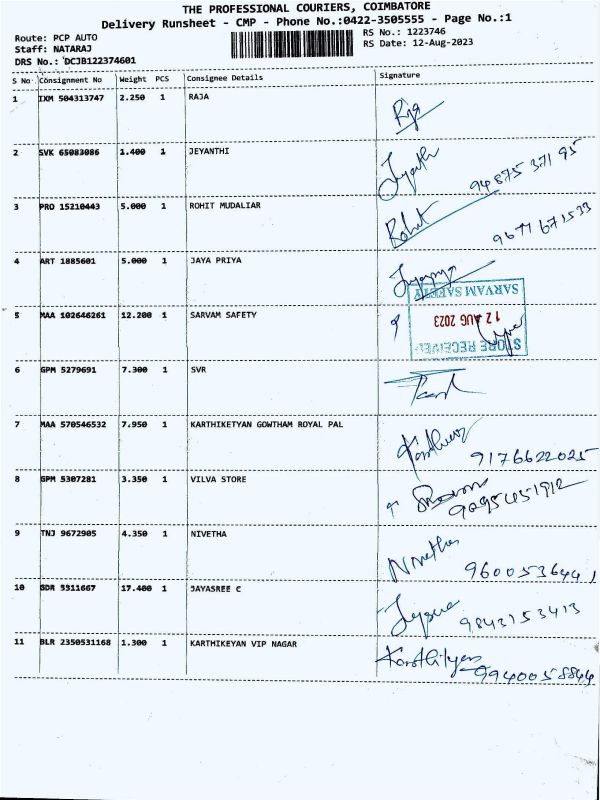 THE PROFESSIONAL COURIERS, COIMBATORE
Delivery Runsheet - CMP - Phone No.:0422-3505555 - Page No.:1
Route: PCP AUTO
RS No.: 1223746
Staff: NATARAJ
RS Date: 12-Aug-2023
DRS No.: DCJB122374601
S No Consignment No Weight PCS Consignee Details Signature
1 IXM 504313747 2.250 1 RAJA Raja
2 SVK 65083086 1.400 1 JEYANTHI Jeyanthi 94875 371 95
3 PRO 15210443 5.000 1 ROHIT MUDALIAR Rohit 9677671533
4 ART 1885601 5.000 1 JAYA PRIYA
5 MAA 102646261 12.200 1 SARVAM SAFETY
SARVAM SAFETY
12 AUG 2023
STORE RECEIVED
6 GPM 5279691 7.300 1 SVR
7 MAA 570546532 7.950 1 KARTHIKETYAN GOWTHAM ROYAL PAL 9176622025
8 GPM 5307281 3.350 1 VILVA STORE 9095451912
9 TNJ 9672905 4.350 1 NIVETHA Nivetha 9600536441
10 GDR 5311667 17.400 1 JAYASREE C 9843153413
11 BLR 2350531168 1.300 1 KARTHIKEYAN VIP NAGAR Karthikeyan 9940058844